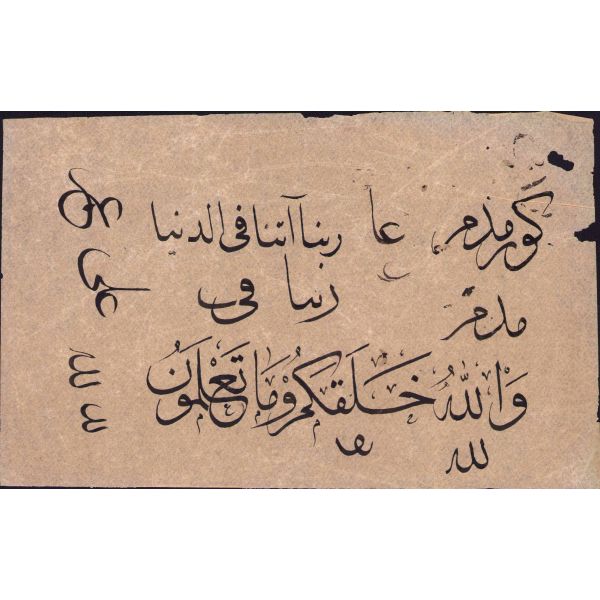 كورمدم عا ربنا آتنا فى الدنيا
مدم ربنا فى
وَاللّٰهُ خَلَقَكُمْ وَمَا تَعْلَمُونَ
لله
على